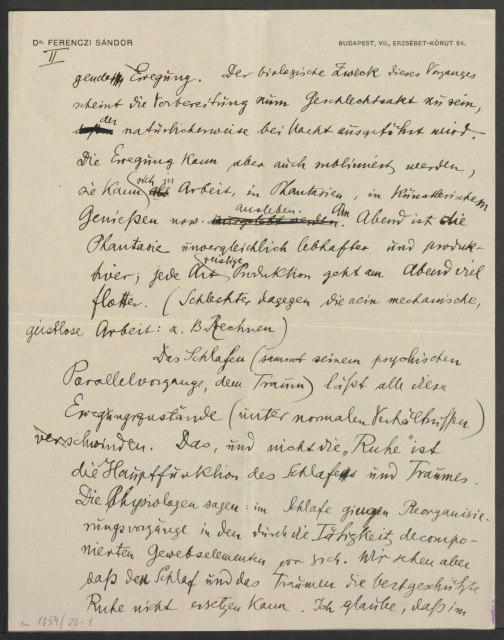 DR. FERENCZI SÁNDOR
BUDAPEST, VII., ERZSÉBET-KÖRUT 54.
II
gender Erregung. Der biologische Zweck dieses Vorganges
scheint die Vorbereitung zum Geschlechtsakt zu sein,
der natürlicherweise bei Nacht ausgeführt wird.
Die Erregung kann aber auch sublimiert werden,
sie kann sich zu Arbeit, in Phantasien, in künstlerischem
Genießen usw. ausleben. Am Abend ist die
Phantasie unvergleichlich lebhafter und produk-
tiver; jede Art geistige Produktion geht am Abend viel
flotter. (Schlechter dagegen die rein mechanische,
geistlose Arbeit: z. B. Rechnen)
Das Schlafen (sammt seinem psychischen
Parallelvorgange, dem Traum) läßt alle diese
Erregungszustände (unter normalen Verhältnissen)
verschwinden. Das, und nicht die „Ruhe" ist
die Hauptfunktion des Schlafens und Traumes.
Die Physiologen sagen: im Schlafe gingen Reorganisie-
rungsvorgänge in den durch die Tätigkeit decompo-
nierten Gewebselementen vor sich. Wir sehen aber
daß den Schlaf und das Träumen die bestgeschützte
Ruhe nicht ersetzen kann. Ich glaube, daß im
1054/20-1